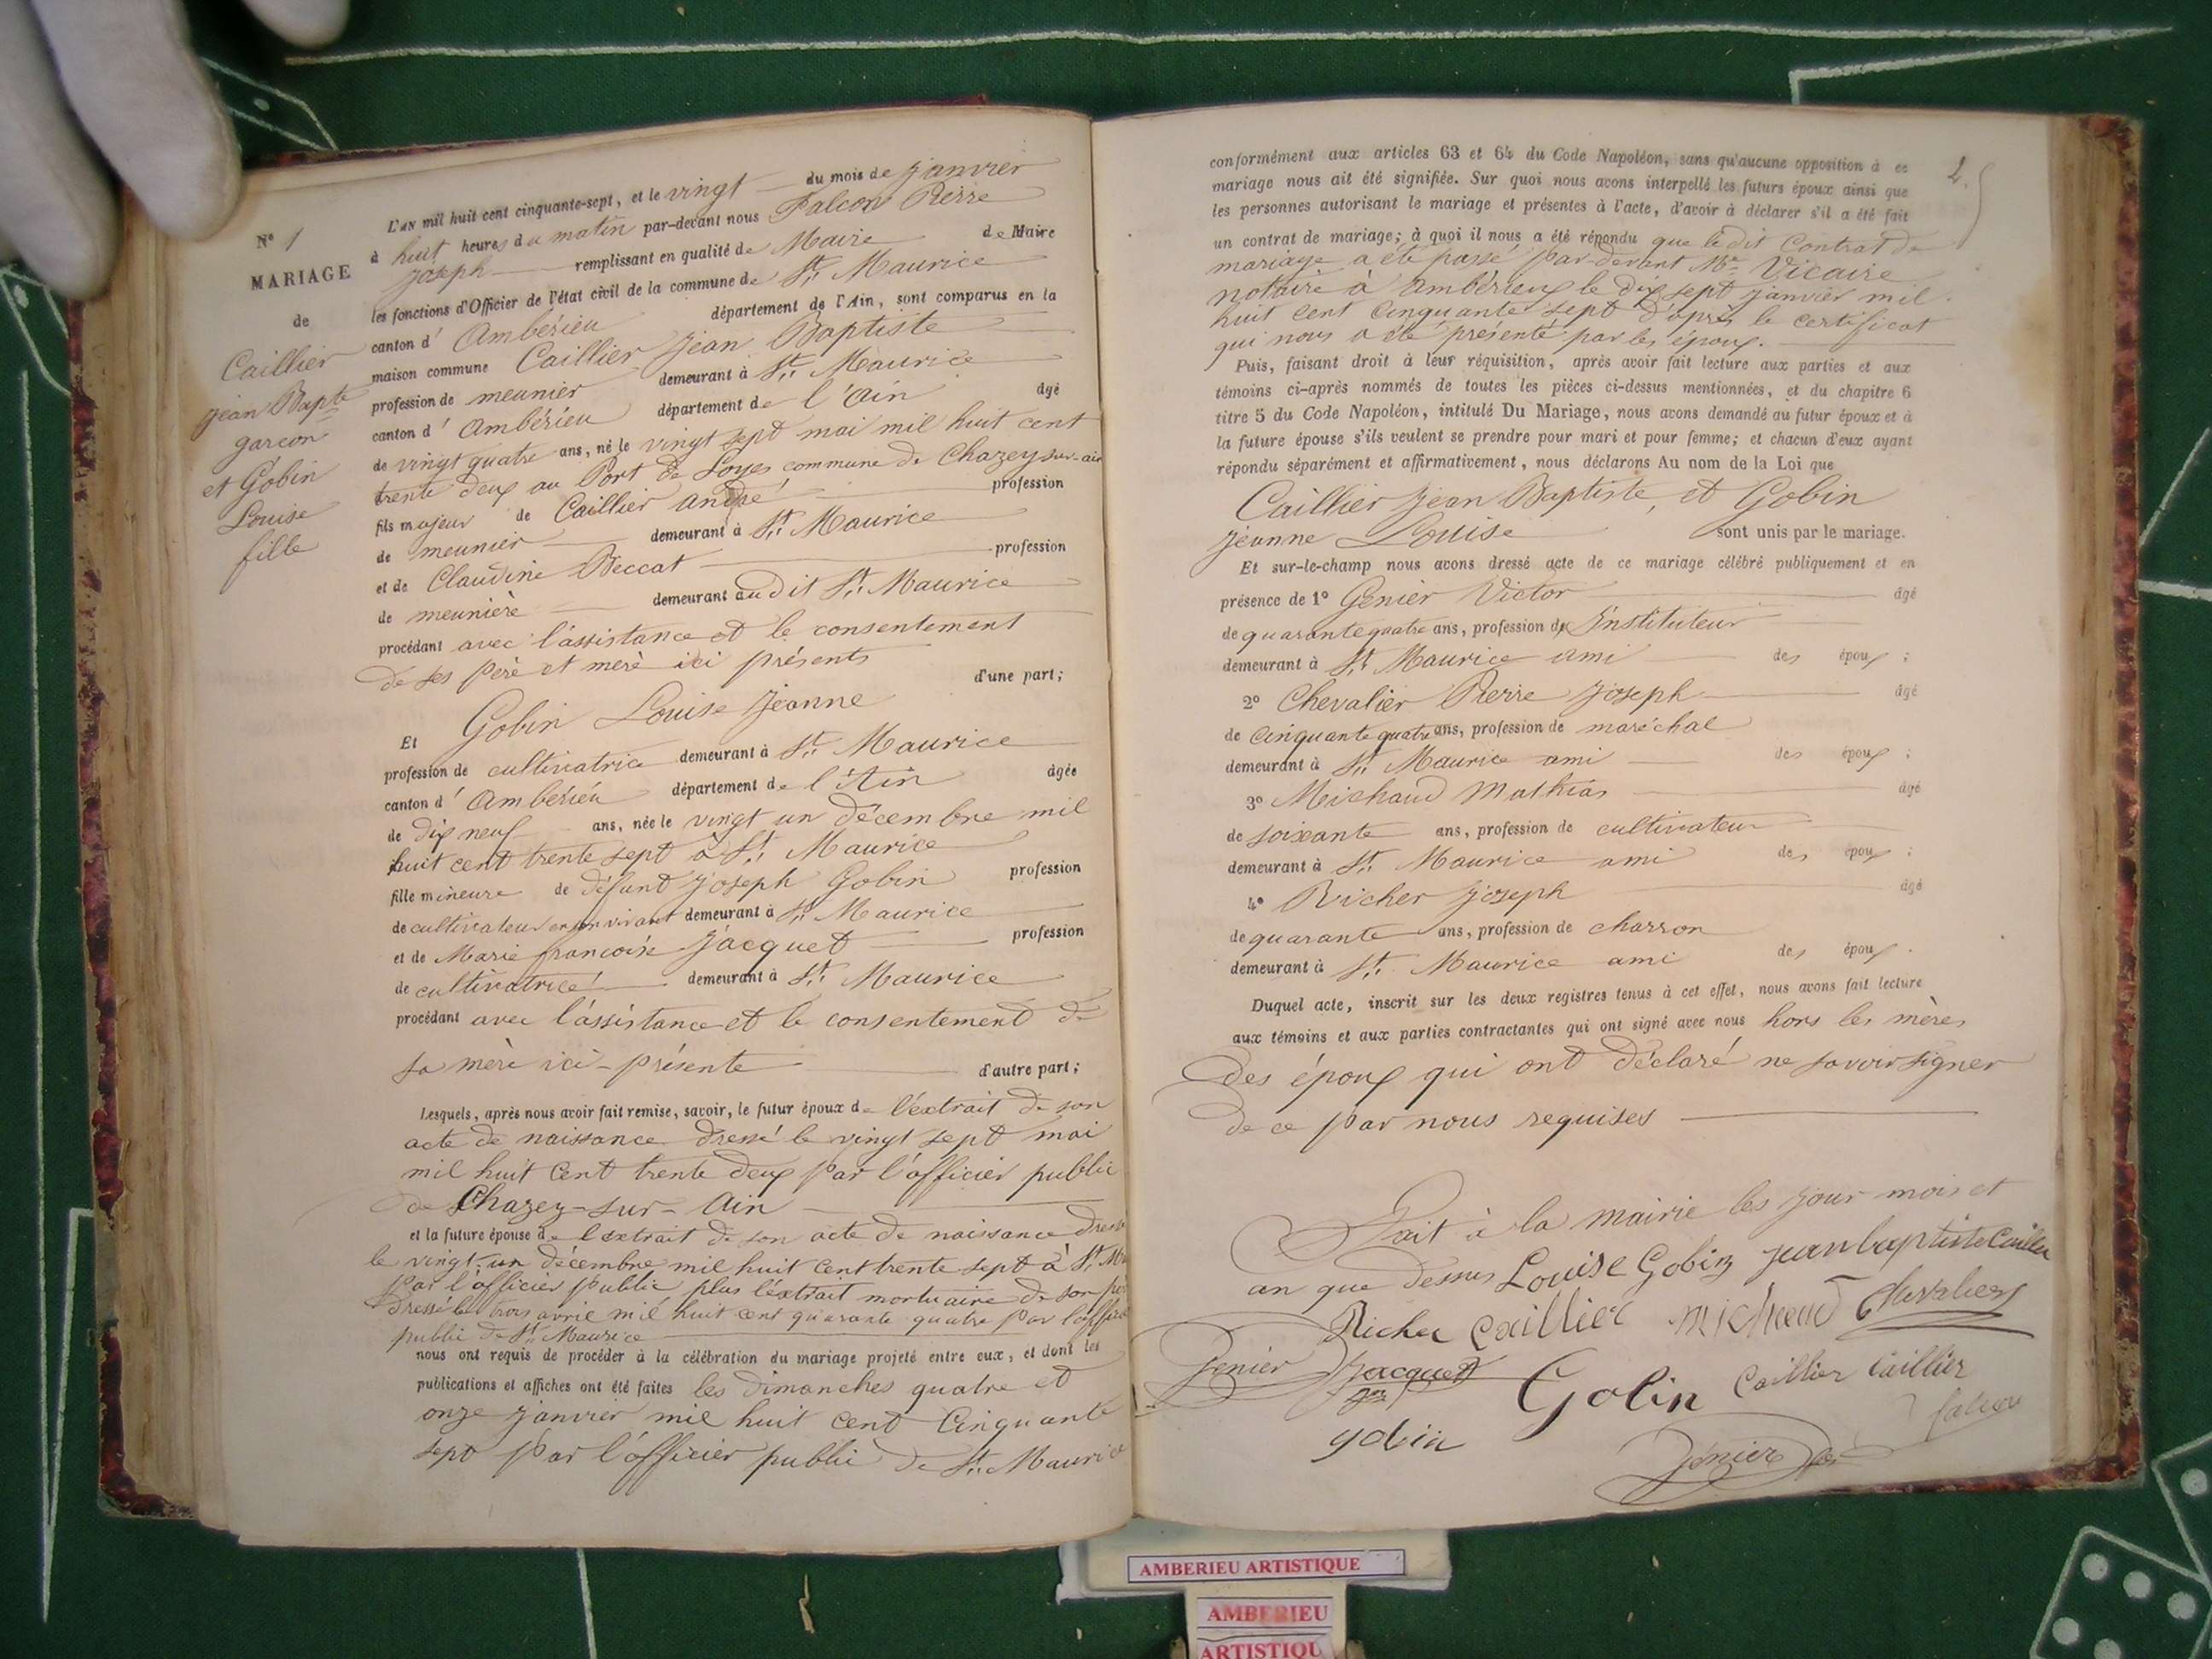 N° 1
MARIAGE
de
Caillier
Jean Bapte
garcon
et Gobin
Louise
fille
L'AN mil huit cent cinquante-sept, et le vingt du mois de janvier
à huit heures du matin par-devant nous Falcoz Pierre
joseph remplissant en qualité de Maire de Maire
les fonctions d'Officier de l'état civil de la commune de St. Maurice
canton d' Ambérieu département de l'Ain, sont comparus en la
maison commune Caillier Jean Baptiste
profession de meunier demeurant à St. Maurice
canton d' Ambérieu département de l'ain âgé
de vingt quatre ans, né le vingt sept mai mil huit cent
trente deux au Port de Loyes commune de Chazey sur-ain
fils majeur de Caillier andré profession
de meunier demeurant à St. Maurice
et de Claudine Beccat profession
de meunière demeurant audit St. Maurice
procédant avec l'assistance et le consentement
de ses père et mère ici présents
d'une part;
Et Gobin Louise Jeanne
profession de cultivatrice demeurant à St. Maurice
canton d' Ambérieu département de l'Ain âgée
de dix neuf ans, née le vingt un décembre mil
huit cent trente sept à St. Maurice
fille mineure de défunt Joseph Gobin profession
de cultivateur en son vivant demeurant à St. Maurice
et de Marie françoise Jacquet profession
de cultivatrice demeurant à St. Maurice
procédant avec l'assistance et le consentement de
sa mère ici-présente d'autre part;
Lesquels, après nous avoir fait remise, savoir, le futur époux de l'extrait de son
acte de naissance dressé le vingt sept mai
mil huit cent trente deux par l'officier public
de Chazey-sur-Ain
et la future épouse de l'extrait de son acte de naissance dressé
le vingt-un décembre mil huit cent trente sept à St. Ma
par l'officier public plus l'extrait mortuaire de son père
dressé le trois avril mil huit cent quarante quatre par l'officier
public de St. Maurice
nous ont requis de procéder à la célébration du mariage projeté entre eux, et dont les
publications et affiches ont été faites les dimanches quatre et
onze janvier mil huit cent cinquante
sept par l'officier public de St. Maurice
2.
conformément aux articles 63 et 64 du Code Napoléon, sans qu'aucune opposition à ce
mariage nous ait été signifiée. Sur quoi nous avons interpellé les futurs époux ainsi que
les personnes autorisant le mariage et présentes à l'acte, d'avoir à déclarer s'il a été fait
un contrat de mariage; à quoi il nous a été répondu que ledit contrat de
mariage a été passé par-devant Me Vicaire
notaire à ambérieux le dix sept janvier mil
huit cent cinquante sept d'après le certificat
qui nous a été présenté par les époux.
Puis, faisant droit à leur réquisition, après avoir fait lecture aux parties et aux
témoins ci-après nommés de toutes les pièces ci-dessus mentionnées, et du chapitre 6
titre 5 du Code Napoléon, intitulé Du Mariage, nous avons demandé au futur époux et à
la future épouse s'ils veulent se prendre pour mari et pour femme; et chacun d'eux ayant
répondu séparément et affirmativement, nous déclarons Au nom de la Loi que
Caillier Jean Baptiste, et Gobin
Jeanne Louise sont unis par le mariage.
Et sur-le-champ nous avons dressé acte de ce mariage célébré publiquement et en
présence de 1° Genier Victor âgé
de quarante quatre ans, profession de Instituteur
demeurant à St. Maurice ami des époux;
2° Chevalier Pierre Joseph âgé
de cinquante quatre ans, profession de maréchal
demeurant à St. Maurice ami des époux;
3° Meichaud Mathias âgé
de soixante ans, profession de cultivateur
demeurant à St. Maurice ami des époux;
4° Richer Joseph âgé
de quarante ans, profession de charron
demeurant à St. Maurice ami des époux.
Duquel acte, inscrit sur les deux registres tenus à cet effet, nous avons fait lecture
aux témoins et aux parties contractantes qui ont signé avec nous hors les mères
des époux qui ont déclaré ne savoir signer
de ce par nous requises
Fait à la mairie les jour mois et
an que dessus Louise Gobin jean baptiste Caillier
Richer Caillier michaud Chevalier
Genier Jacquet
Gobin Caillier Caillier
gobin falcoz
Génier
AMBERIEU ARTISTIQUE
AMBERIEU
ARTISTIQU